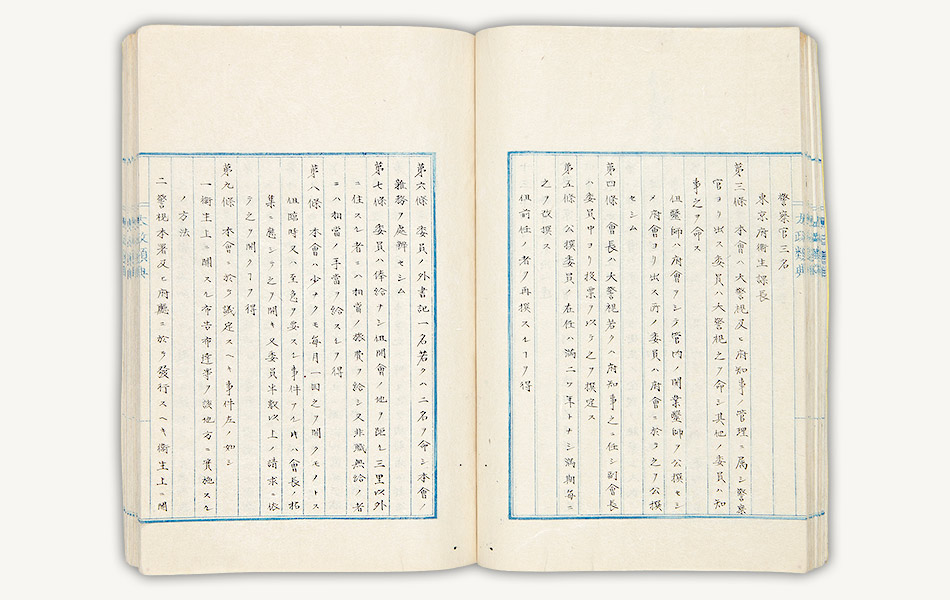 警察官三名
東京府衛生課長
第三條 本會ハ大警視及ヒ府知事ノ管理ニ屬シ警察
官ヨリ出ス委員ハ大警視之ヲ命シ其他ノ委員ハ知
事之ヲ命ス
但醫師ハ府會ヲシテ管内ノ開業醫師ヲ公撰セシ
メ府會ヨリ出ス所ノ委員ハ府會ニ於テ之ヲ公撰
セシム
第四條 會長ハ大警視若クハ府知事之ニ任シ副會長
ハ委員中ヨリ投票ヲ以テ之ヲ撰定ス
第五條 公撰委員ノ在任ハ滿二ケ年トナシ滿期毎ニ
之ヲ改撰ス
但前任ノ者ヲ再撰スルヿヲ得
第六條 委員ノ外書記一名若クハ二名ヲ命シ本會ノ
雜務ヲ處辨セシム
第七條 委員ハ俸給ナシ但開會ノ地ヲ距ル三里以外
ニ住スル者ニハ相當ノ旅費ヲ給シ又非職無給ノ者
ニハ相當ノ手當ヲ給スルヲ得
第八條 本會ハ少ナクモ毎月一回之ヲ開クモノトス
但臨時又ハ至急ヲ要スル事件アルトキハ會長ノ招
集ニ應シテ之ヲ開キ又委員半數以上ノ請求ニ依
テ之ヲ開クヿヲ得
第九條 本會ニ於テ議定スヘキ事件左ノ如シ
一 衞生上ニ關スル布告布達等ヲ該地方ニ實施スル
ノ方法
二 警視本署及ヒ府廳ニ於テ發行スヘキ衞生上ニ關